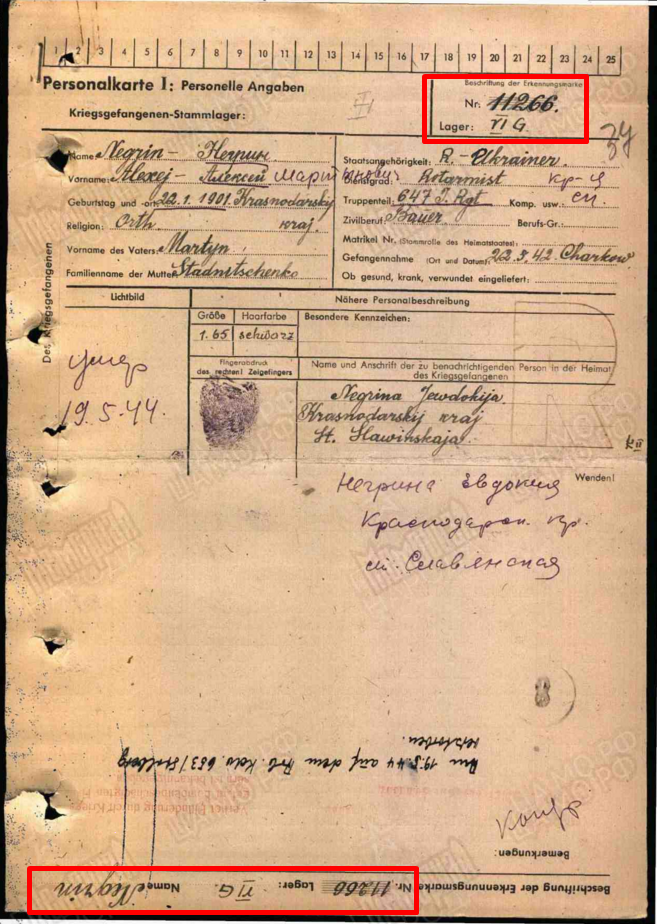 1 2 3 4 5 6 7 8 9 10 11 12 13 14 15 16 17 18 19 20 21 22 23 24 25
Personalkarte I: Personelle Angaben
Beschriftung der Erkennungsmarke
Nr. 11266.
Kriegsgefangenen-Stammlager:
Lager: VI G.
Des Kriegsgefangenen
Name: Negrin - Негрин
Vorname: Alexej - Алексей Мартынович
Geburtstag und -ort: 22.1.1901. Krasnodarskij
Religion: Orth. kraj.
Vorname des Vaters: Martyn.
Familienname der Mutter: Stadnitschenko
Staatsangehörigkeit: R. - Ukrainer.
Dienstgrad: Rotarmist кр-ц
Truppenteil: 647 J. Rgt Komp. usw.: сп.
Zivilberuf: Bauer Berufs-Gr.:
Matrikel Nr. (Stammrolle des Heimatstaates):
Gefangennahme (Ort und Datum): 22.5.42. Charkow.
Ob gesund, krank, verwundet eingeliefert:
Lichtbild
Nähere Personalbeschreibung
Größe Haarfarbe Besondere Kennzeichen:
1.65 schwarz
Fingerabdruck
des rechten! Zeigefingers
Name und Anschrift der zu benachrichtigenden Person in der Heimat
des Kriegsgefangenen
умер
19.5.44.
Negrina Jewdokija.
Krasnodarskij kraj
St. Slawinskaja.
Wenden!
Негрина Евдокия
Краснодарск. кр.
ст. Славянская
Am 19.5.44 auf dem Arb. Kdo. 653/Stolberg
verstorben.
Bemerkungen:
Beschriftung der Erkennungsmarke Nr. 11266 Lager: VI G. Name: Negrin